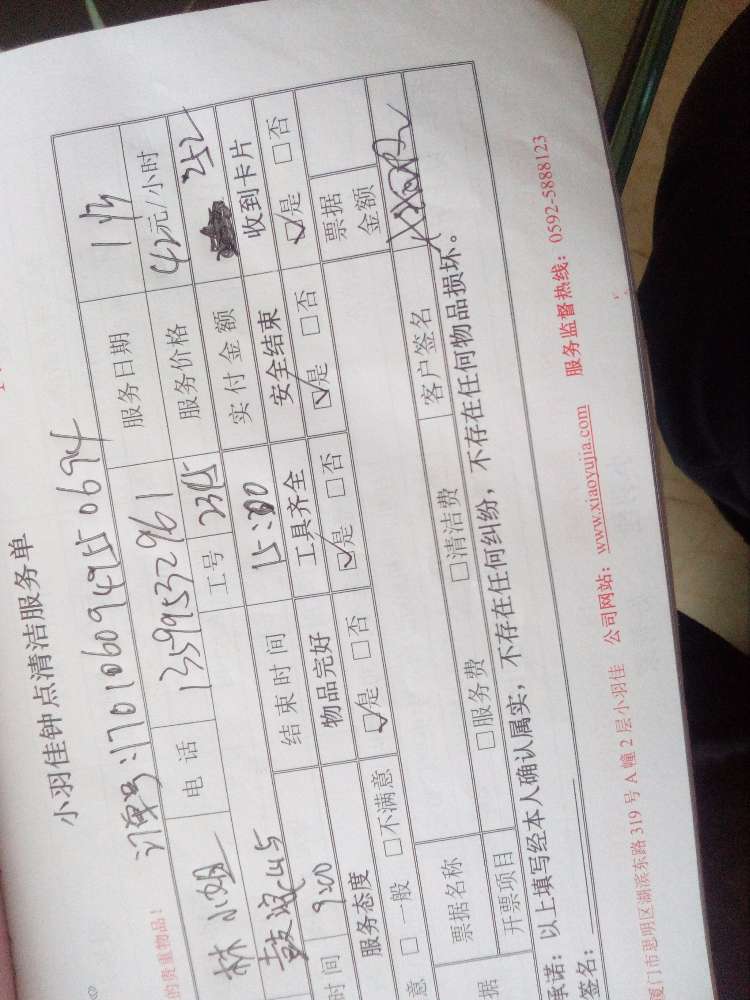 小羽佳钟点清洁服务单
的贵重物品！
订单号:17010609495 0694
林小姐 电话 13599532961 服务日期
工号 2315 服务价格 42元/小时
鼓浪 实付金额 252
时间 9:00 结束时间 15:00
服务态度 物品完好 工具齐全 安全结束 收到卡片
意 □一般 □不满意 ☑是 □否 ☑是 □否 ☑是 □否 ☑是 □否
据 票据名称 票据金额
开票项目 □服务费 □清洁费 客户签名
承诺：以上填写经本人确认属实，不存在任何纠纷，不存在任何物品损坏。
签名：
厦门市思明区湖滨东路319号A幢2层小羽佳 公司网站：www.xiaoyujia.com 服务监督热线：0592-5888123